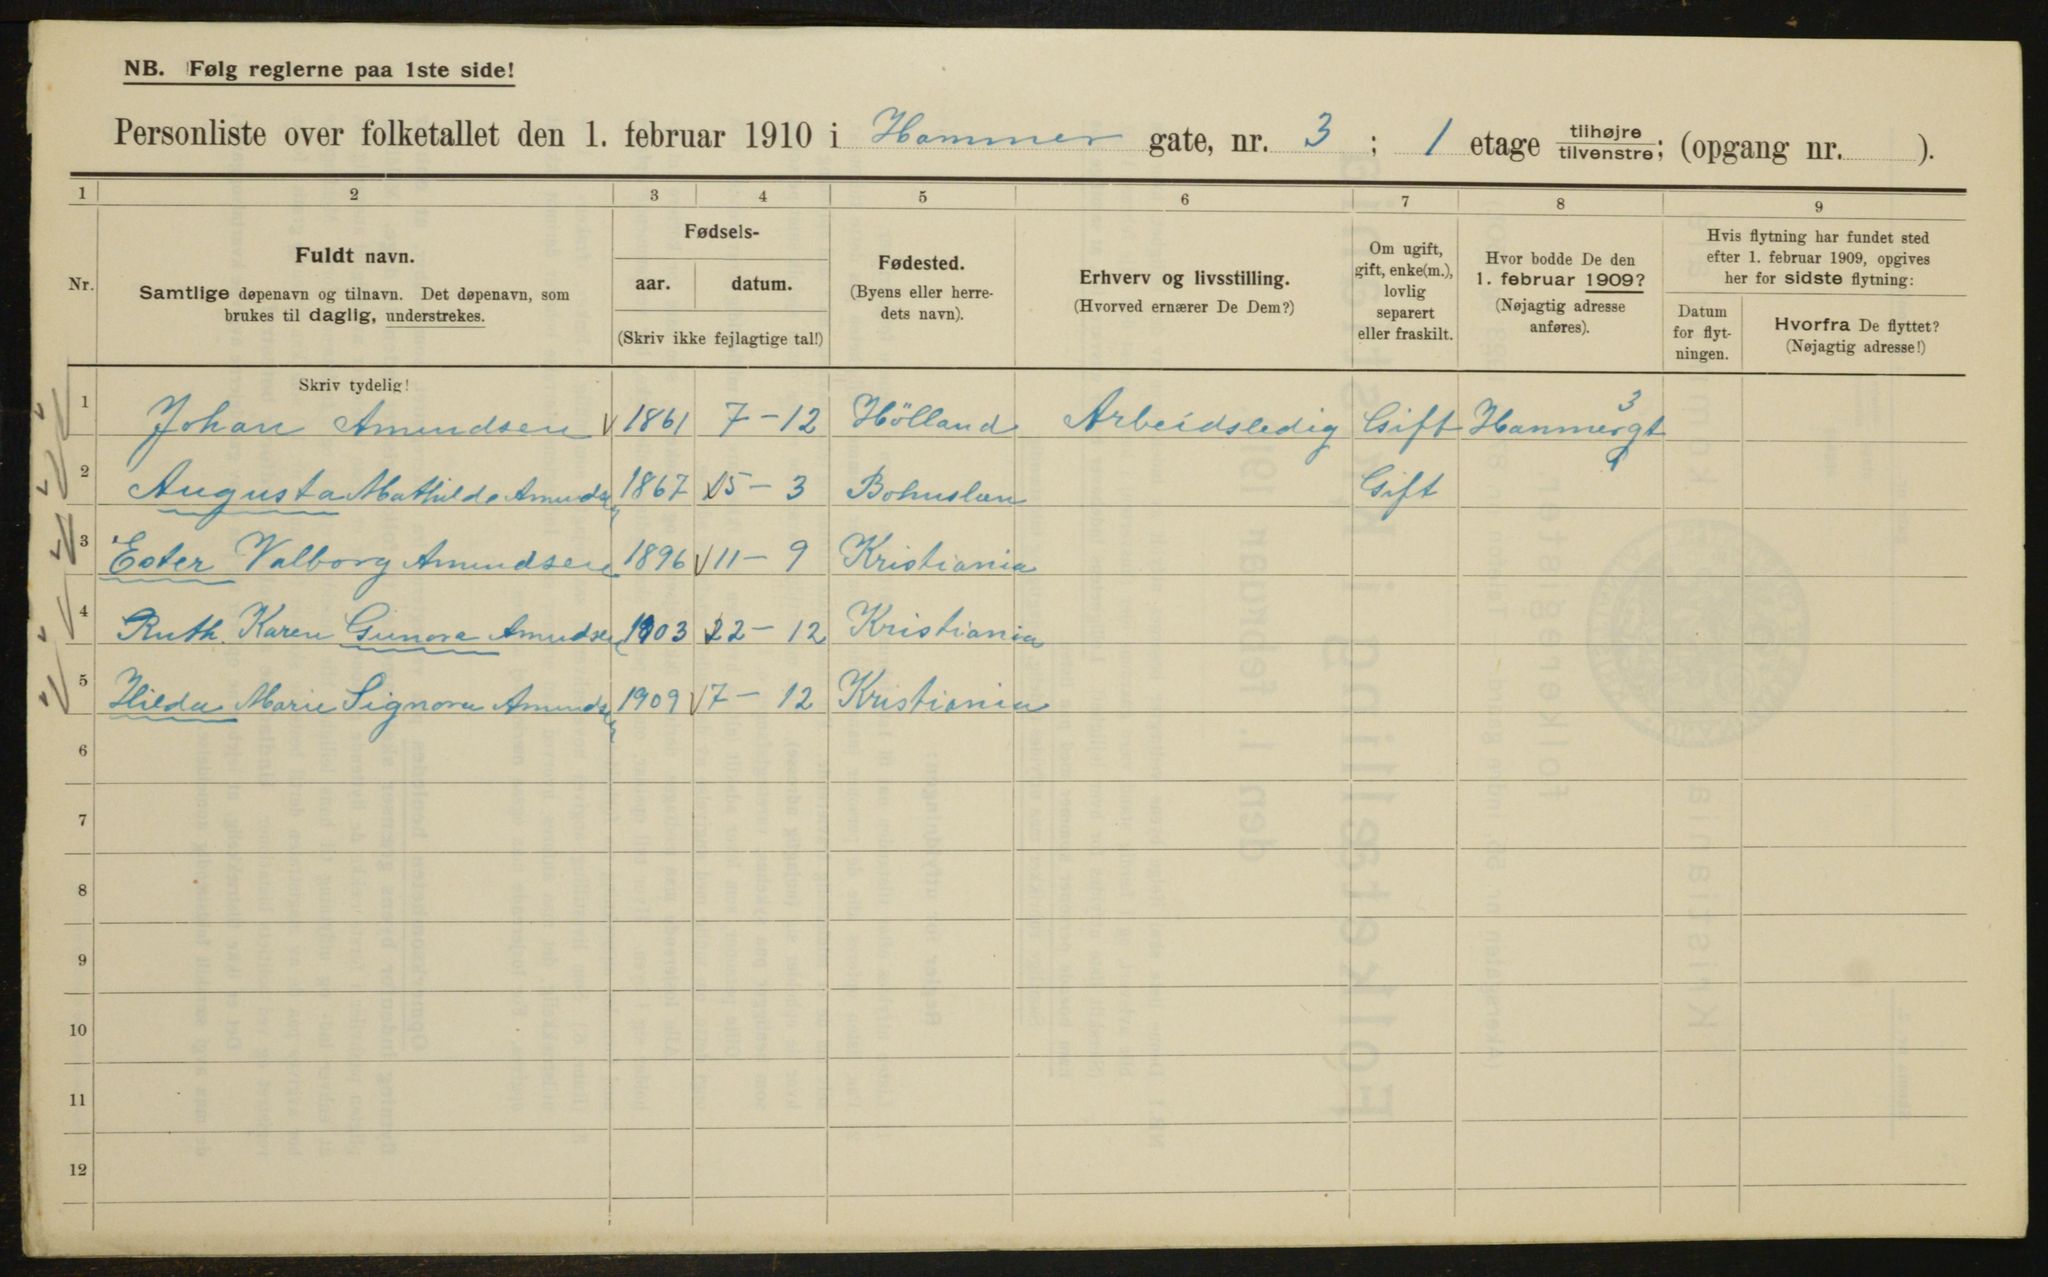 NB. Følg reglerne paa 1ste side!
Personliste over folketallet den 1. februar 1910 i Hammer gate, nr. 3 ; 1 etage tilhøjre/tilvenstre; (opgang nr. ).
1 2 3 4 5 6 7 8 9
Nr.
Fuldt navn.
Samtlige døpenavn og tilnavn. Det døpenavn, som
brukes til daglig, understrekes.
Fødsels-
aar. datum.
(Skriv ikke fejlagtige tal!)
Fødested.
(Byens eller herre-
dets navn).
Erhverv og livsstilling.
(Hvorved ernærer De Dem?)
Om ugift,
gift, enke(m.),
lovlig
separert
eller fraskilt.
Hvor bodde De den
1. februar 1909?
(Nøjagtig adresse
anføres).
Hvis flytning har fundet sted
efter 1. februar 1909, opgives
her for sidste flytning:
Datum
for flyt-
ningen.
Hvorfra De flyttet?
(Nøjagtig adresse!)
Skriv tydelig!
1 Johan Amundsen 1861 7 – 12 Hölland Arbeidsledig Gift Hammergt 3
2 Augusta Mathilde Amundsen 1867 15 – 3 Bohuslæn Gift
3 Ester Valborg Amundsen 1896 11 – 9 Kristiania
4 Ruth Karen Gunora Amudsen 1903 22 – 12 Kristiania
5 Hilda Marie Signora Amundsen 1909 7 – 12 Kristiania
6
7
8
9
10
11
12